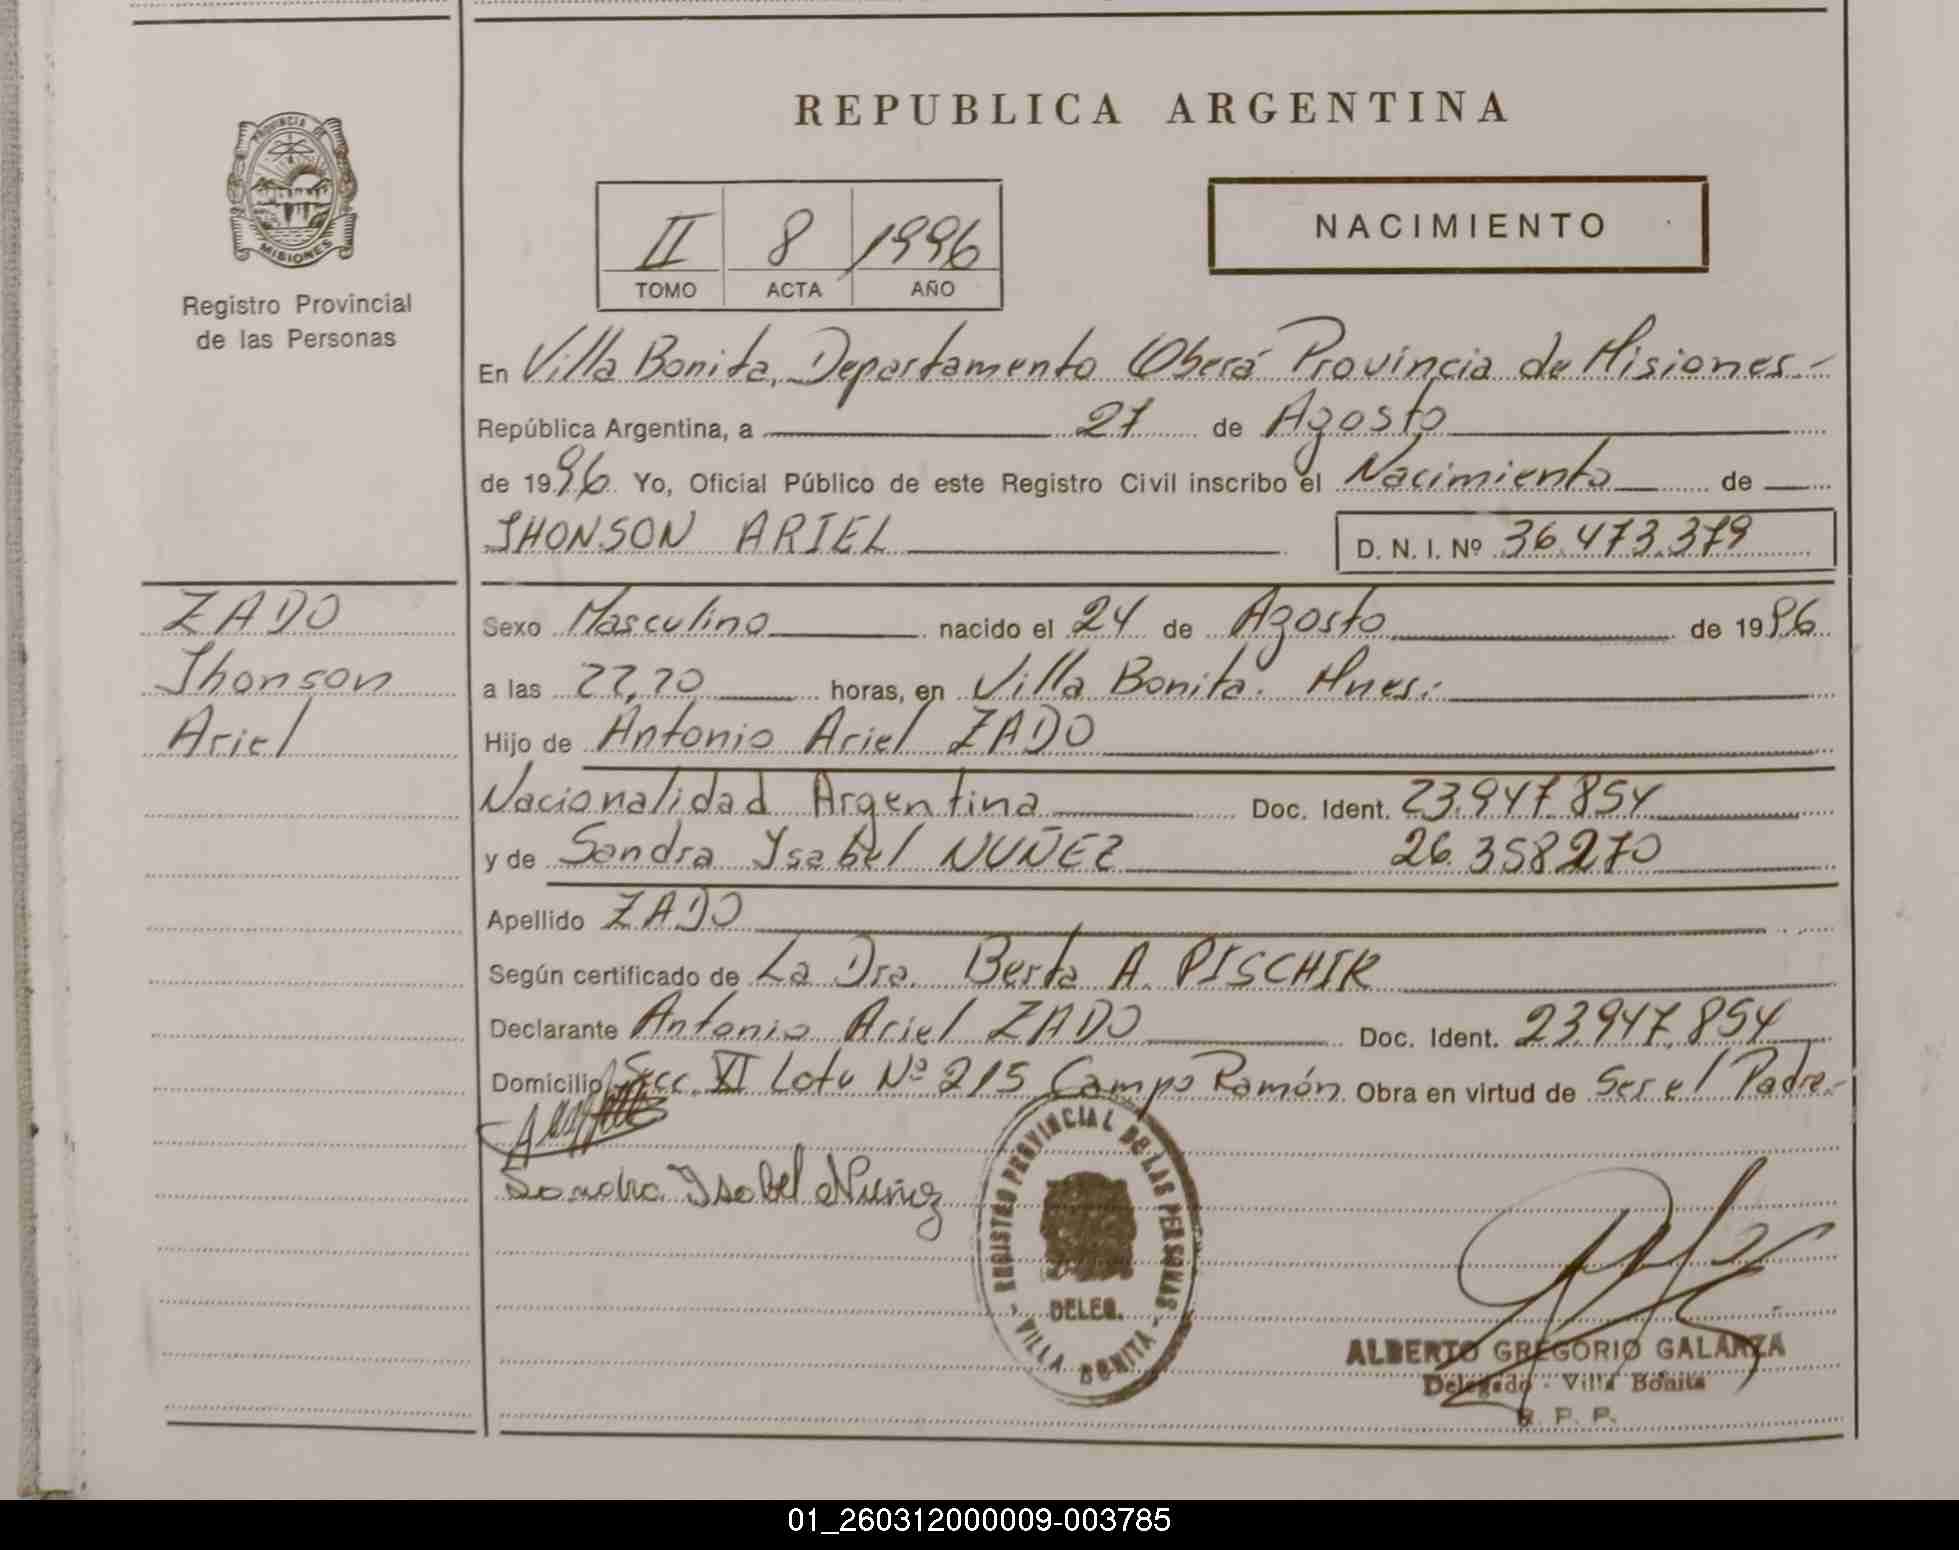 PROVINCIA DE
MISIONES
Registro Provincial
de las Personas
REPUBLICA ARGENTINA
II 8 1996
TOMO ACTA AÑO
NACIMIENTO
En Villa Bonita, Departamento Oberá Provincia de Misiones.-
República Argentina, a 27 de Agosto
de 1996 Yo, Oficial Público de este Registro Civil inscribo el Nacimiento de
JHONSON ARIEL D. N. I. Nº 36.473.379
ZADO
Jhonson
Ariel
Sexo Masculino nacido el 24 de Agosto de 1996
a las 22,20 horas, en Villa Bonita. Mnes.-
Hijo de Antonio Ariel ZADO
Nacionalidad Argentina Doc. Ident. 23.947.854
y de Sandra Ysabel NUÑEZ 26.358270
Apellido ZADO
Según certificado de La Dra. Berta A. PISCHIK
Declarante Antonio Ariel ZADO Doc. Ident. 23.947.854
Domicilio Secc. VI Lote Nº 215 Campo Ramón Obra en virtud de Ser el Padre.-
Sandra Ysabel Nuñez
REGISTRO PROVINCIAL DE LAS PERSONAS
DELEG.
- VILLA BONITA -
ALBERTO GREGORIO GALARZA
Delegado - Villa Bonita
R. P. P.
01_260312000009-003785